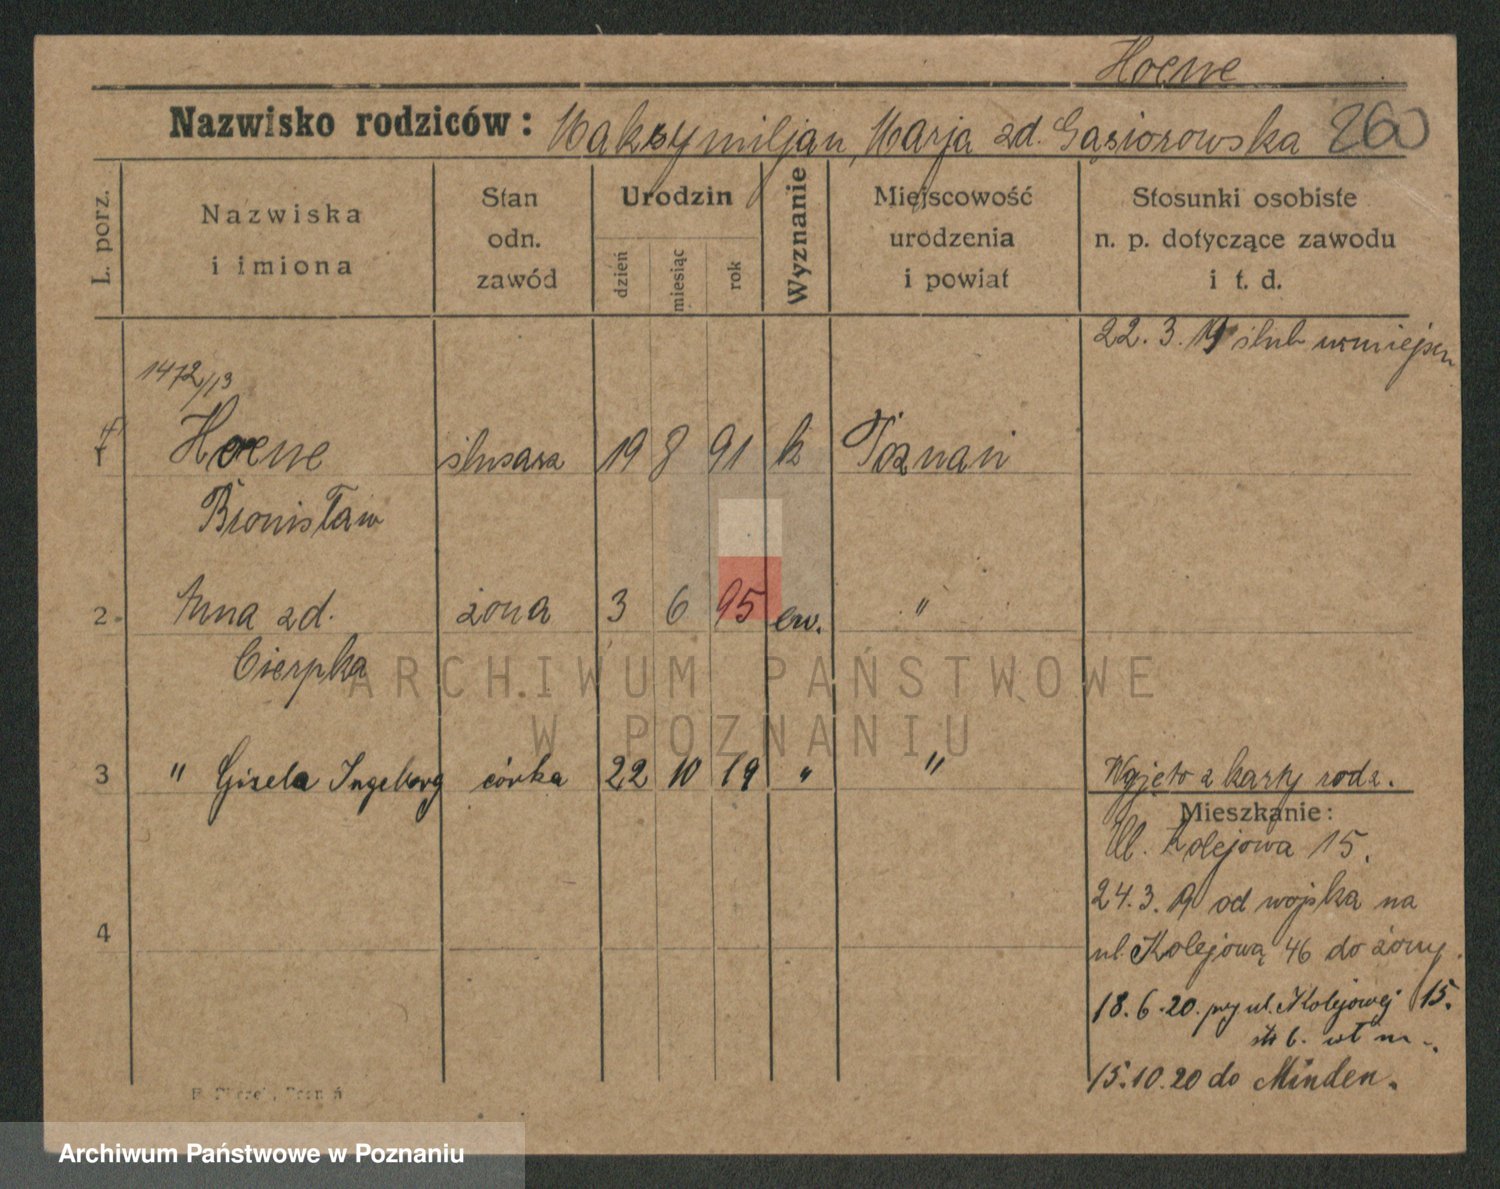 Hoene
Nazwisko rodziców: Maksymiljan, Marja zd. Gąsiorowska 260
L. porz.
Nazwiska i imiona
Stan odn. zawód
Urodzin
dzień miesiąc rok
Wyznanie
Miejscowość urodzenia i powiat
Stosunki osobiste n. p. dotyczące zawodu i t. d.
22. 3. 19 ślub w miejscu
1472/13
1 Hoene ślusarz 19 8 91 k Poznań
Bronisław
2 Anna zd. żona 3 6 95 ew. "
Cierpka
3 " Gisela Ingeborg córka 22 10 19 " " Wyjęto z karty rodz.
Mieszkanie:
Ul. Kolejowa 15.
24. 3. 19 od wojska na
4
ul. Kolejową 46 do żony.
18. 6. 20. przy ul. Kolejowej 15.
15. 10. 20 do Minden.
ARCHIWUM PAŃSTWOWE
W POZNANIU
Archiwum Państwowe w Poznaniu